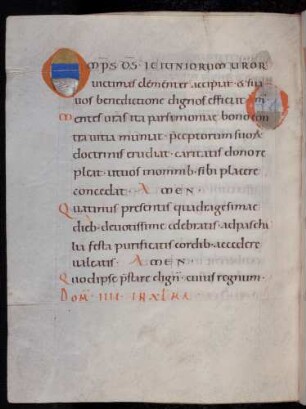 OMPS DS IEIUNIORUM UROR
uictimas clementer accipiat & sui
uos benedictione dignos efficiat
mentes uras ita parsimoniae bono con
tra uitia muniat preceptorum suorum
doctrinis erudiat caritatis dono re
pleat ut uos in omnibus sibi placere
concedat · AMEN ·
Quatinus presentis quadragesimae
dieb deuotissime celebratis ad pascha
lia festa purificatis cordib accedere
ualeatis · AMEN ·
Quod ipse prstare dign cuius regnum ·
DOM IIII IN XLMA